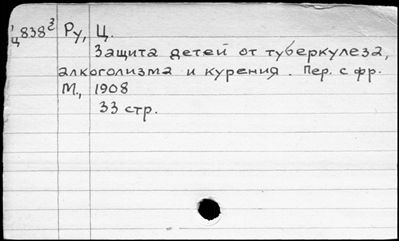 ц838³ Ру, Ц.
Защита детей от туберкулеза,
алкоголизма и курения. Пер. с фр.
М., 1908
33 стр.